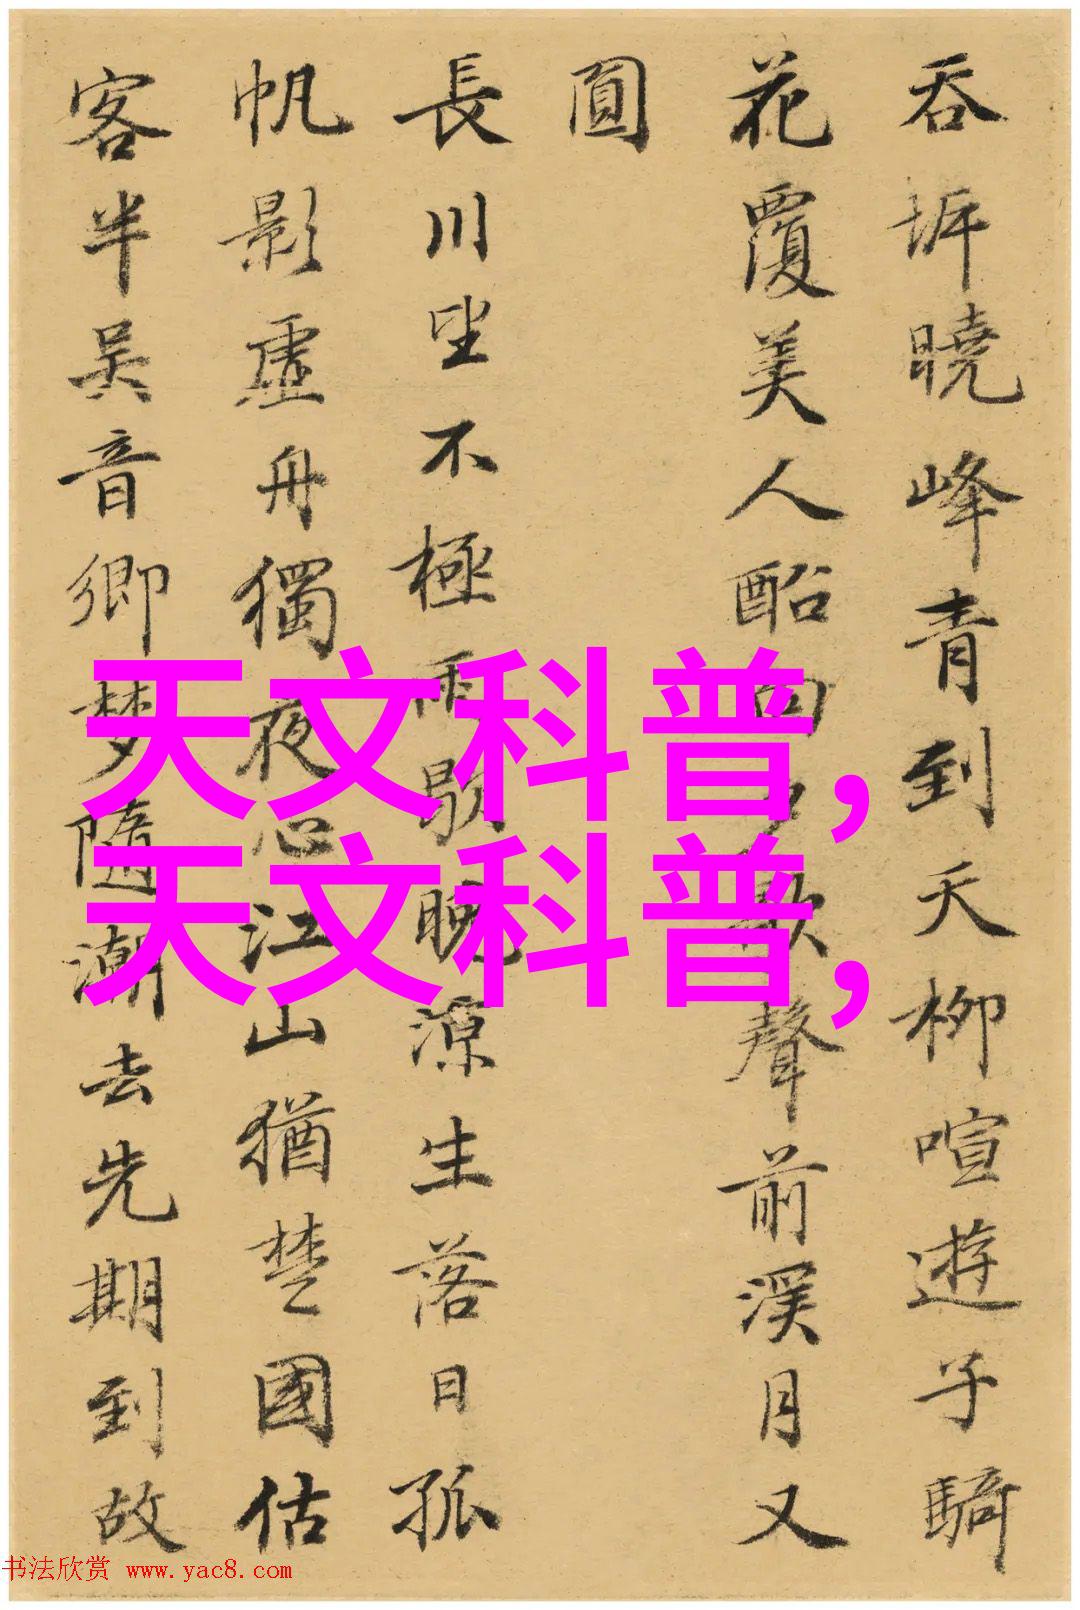 吞坼曉峰青到天柳喧遊子騎
花覆美人酩回夕歌聲前溪月又
圓
長川坐不極雨歇晚源生落日孤
帆影虛舟獨夜心江山猶楚國估
客半吴音鄉梦隨潮去先期到故
天文科普,
天文科普,
书法欣赏 www.yac8.com